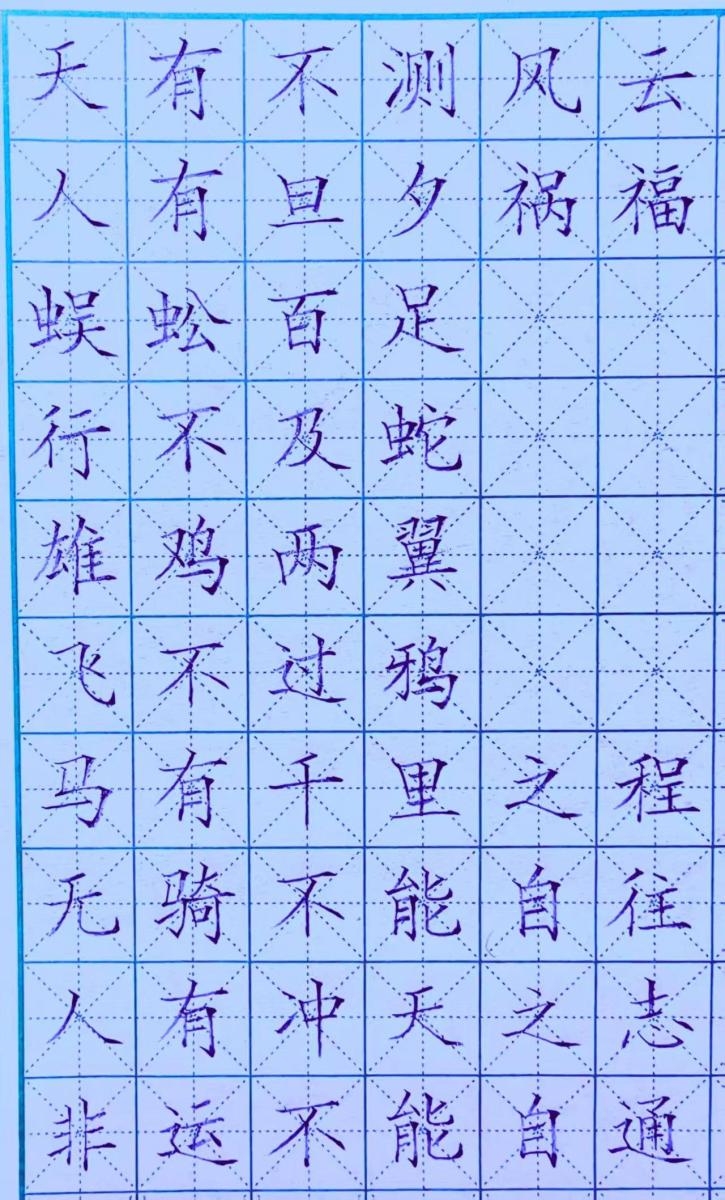 天有不测风云
人有旦夕祸福
蜈蚣百足
行不及蛇
雄鸡两翼
飞不过鸦
马有千里之程
无骑不能自往
人有冲天之志
非运不能自通